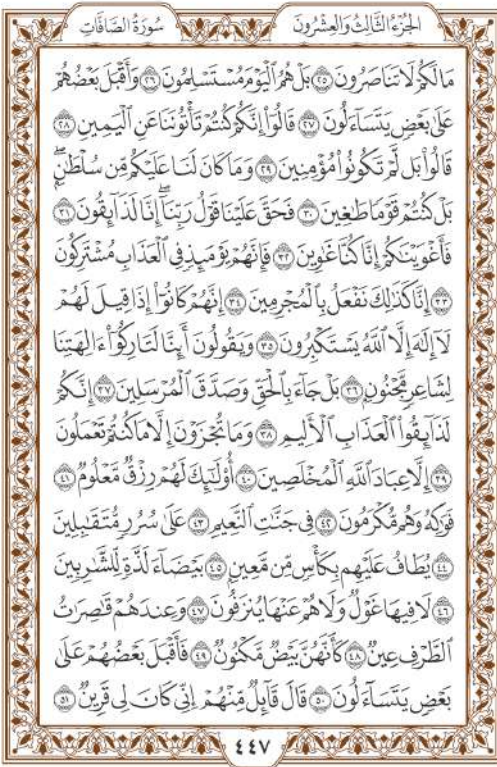 الجُزْءُ الثَّالِثُ وَالعِشْرُونَ سُورَةُ الصَّافَّاتِ
مَالَكُمۡ لَا تَنَاصَرُونَ ٢٥ بَلۡ هُمُ ٱلۡيَوۡمَ مُسۡتَسۡلِمُونَ ٢٦ وَأَقۡبَلَ بَعۡضُهُمۡ
عَلَىٰ بَعۡضٖ يَتَسَآءَلُونَ ٢٧ قَالُوٓاْ إِنَّكُمۡ كُنتُمۡ تَأۡتُونَنَا عَنِ ٱلۡيَمِينِ ٢٨
قَالُواْ بَل لَّمۡ تَكُونُواْ مُؤۡمِنِينَ ٢٩ وَمَا كَانَ لَنَا عَلَيۡكُم مِّن سُلۡطَٰنِۭۖ
بَلۡ كُنتُمۡ قَوۡمٗا طَٰغِينَ ٣٠ فَحَقَّ عَلَيۡنَا قَوۡلُ رَبِّنَآۖ إِنَّا لَذَآئِقُونَ ٣١
فَأَغۡوَيۡنَٰكُمۡ إِنَّا كُنَّا غَٰوِينَ ٣٢ فَإِنَّهُمۡ يَوۡمَئِذٖ فِي ٱلۡعَذَابِ مُشۡتَرِكُونَ
٣٣ إِنَّا كَذَٰلِكَ نَفۡعَلُ بِٱلۡمُجۡرِمِينَ ٣٤ إِنَّهُمۡ كَانُوٓاْ إِذَا قِيلَ لَهُمۡ
لَآ إِلَٰهَ إِلَّا ٱللَّهُ يَسۡتَكۡبِرُونَ ٣٥ وَيَقُولُونَ أَئِنَّا لَتَارِكُوٓاْ ءَالِهَتِنَا
لِشَاعِرٖ مَّجۡنُونِۭ ٣٦ بَلۡ جَآءَ بِٱلۡحَقِّ وَصَدَّقَ ٱلۡمُرۡسَلِينَ ٣٧ إِنَّكُمۡ
لَذَآئِقُواْ ٱلۡعَذَابِ ٱلۡأَلِيمِ ٣٨ وَمَا تُجۡزَوۡنَ إِلَّا مَا كُنتُمۡ تَعۡمَلُونَ
٣٩ إِلَّا عِبَادَ ٱللَّهِ ٱلۡمُخۡلَصِينَ ٤٠ أُوْلَٰٓئِكَ لَهُمۡ رِزۡقٞ مَّعۡلُومٞ ٤١
فَوَٰكِهُ وَهُم مُّكۡرَمُونَ ٤٢ فِي جَنَّٰتِ ٱلنَّعِيمِ ٤٣ عَلَىٰ سُرُرٖ مُّتَقَٰبِلِينَ
٤٤ يُطَافُ عَلَيۡهِم بِكَأۡسٖ مِّن مَّعِينِۭ ٤٥ بَيۡضَآءَ لَذَّةٖ لِّلشَّٰرِبِينَ
٤٦ لَا فِيهَا غَوۡلٞ وَلَا هُمۡ عَنۡهَا يُنزَفُونَ ٤٧ وَعِندَهُمۡ قَٰصِرَٰتُ
ٱلطَّرۡفِ عِينٞ ٤٨ كَأَنَّهُنَّ بَيۡضٞ مَّكۡنُونٞ ٤٩ فَأَقۡبَلَ بَعۡضُهُمۡ عَلَىٰ
بَعۡضٖ يَتَسَآءَلُونَ ٥٠ قَالَ قَآئِلٞ مِّنۡهُمۡ إِنِّي كَانَ لِي قَرِينٞ ٥١
٤٤٧